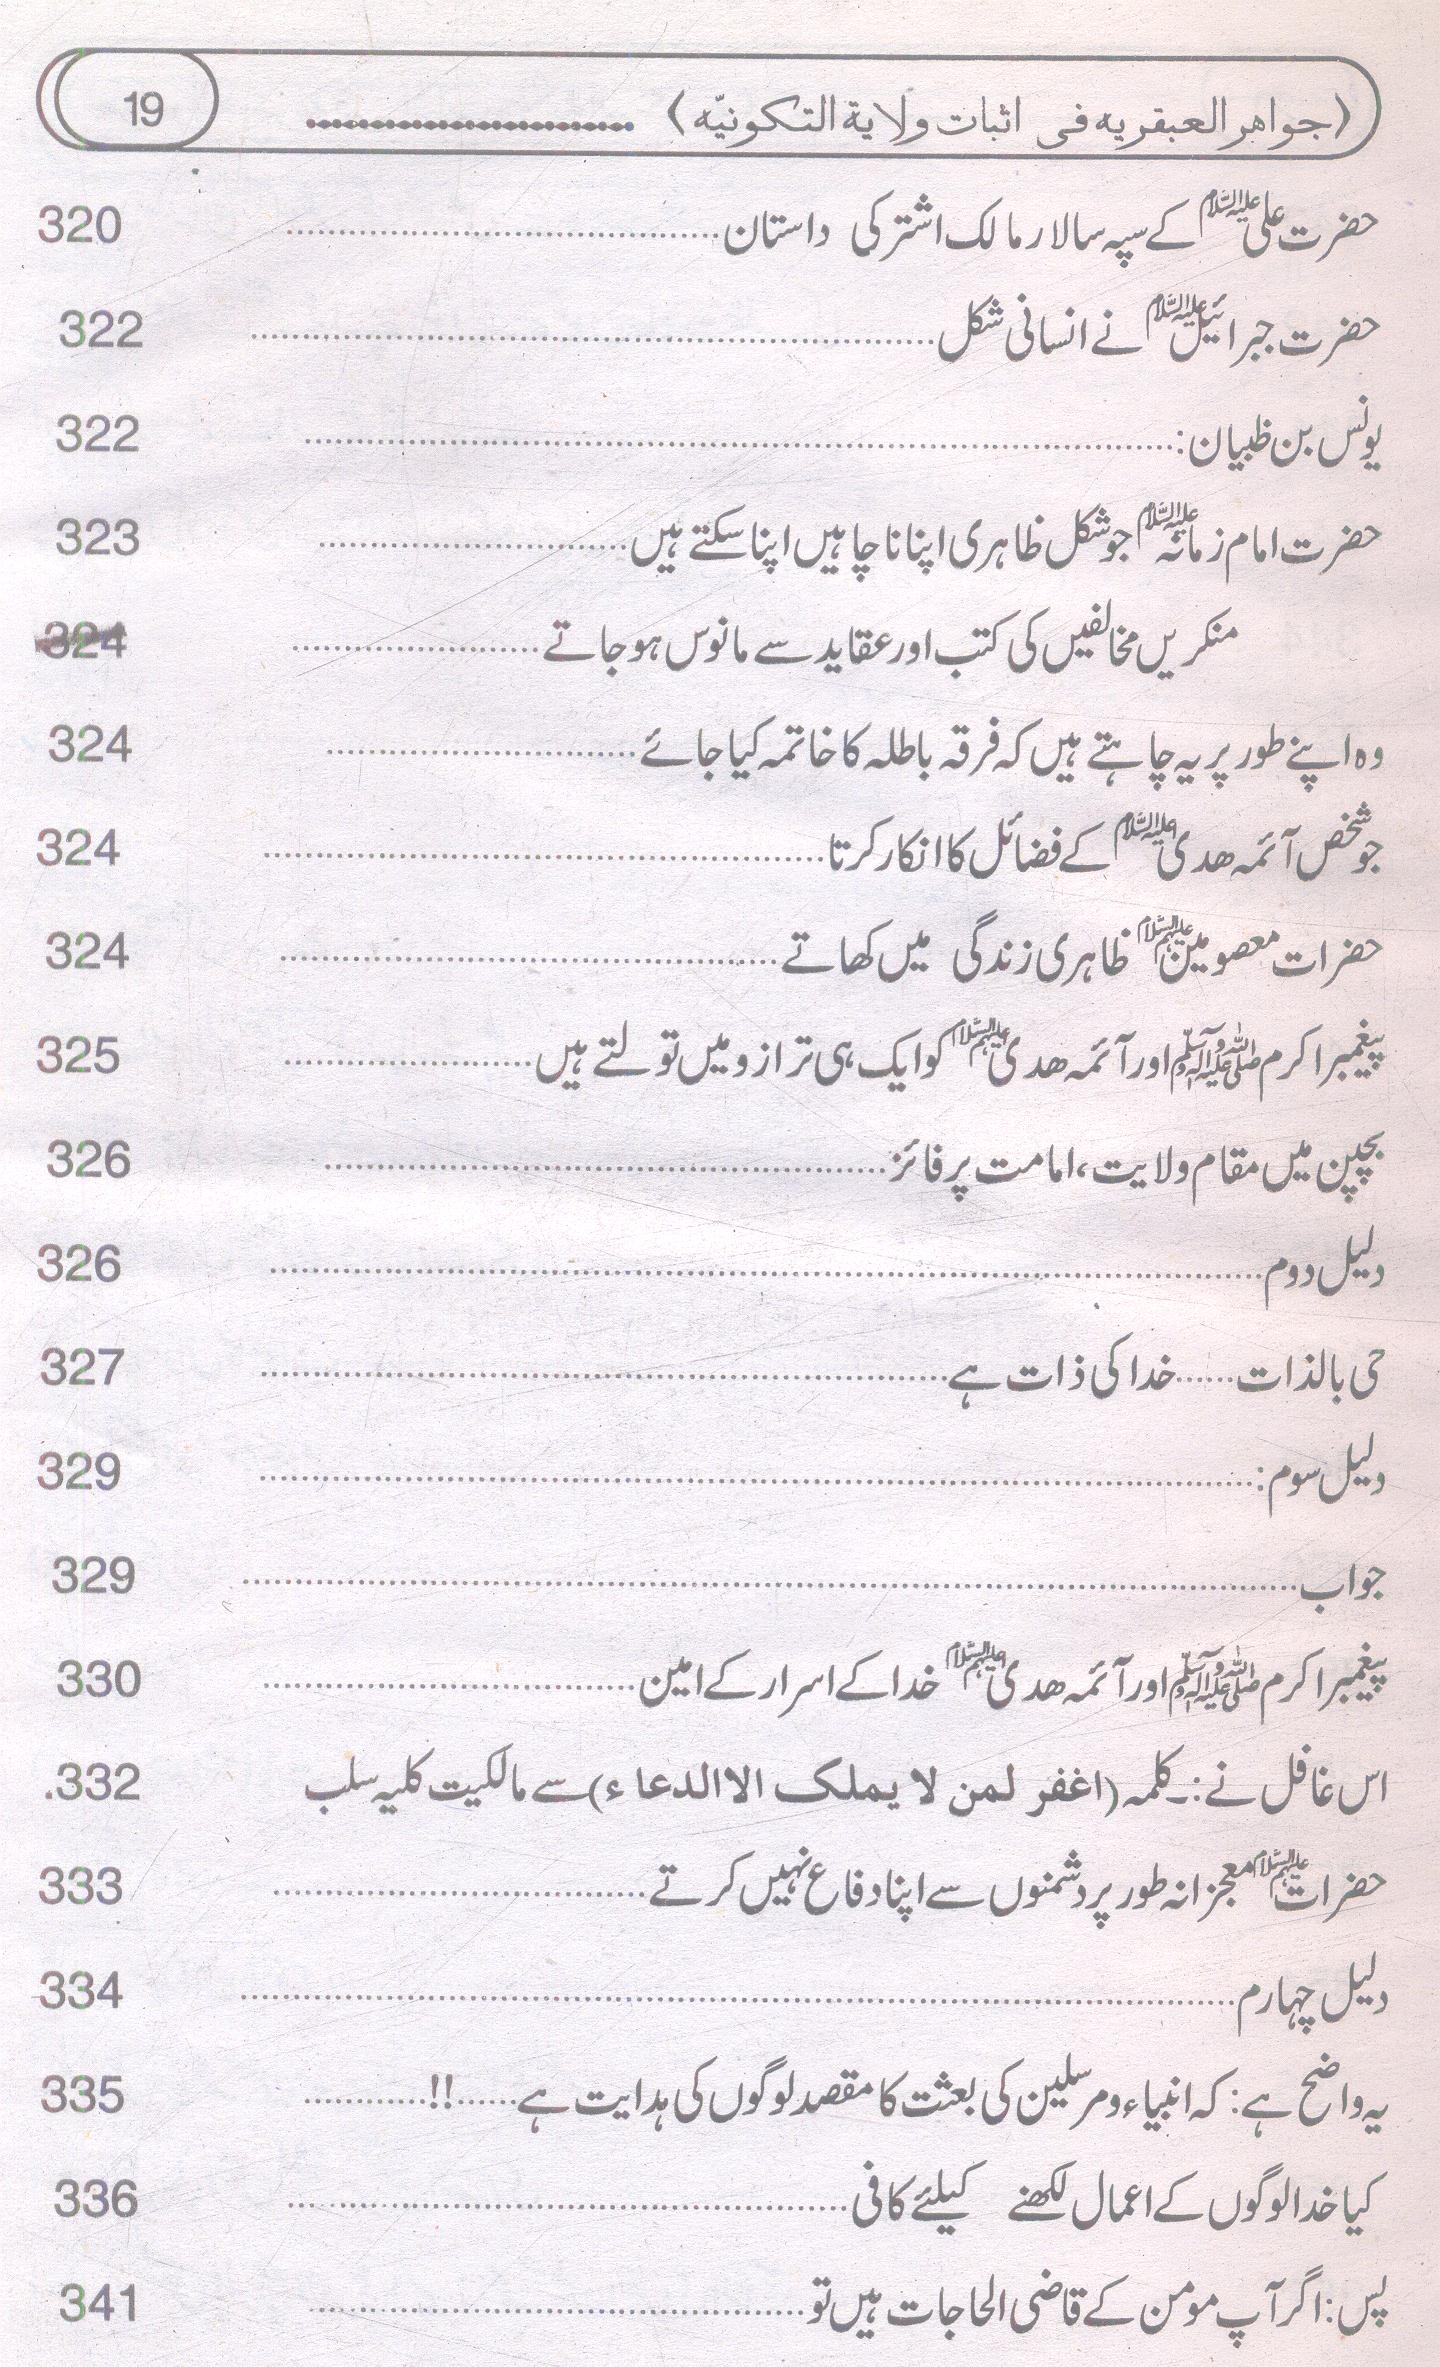 ﴿جواهر العبقريه فى اثبات ولاية التكونيّه﴾ ........................ 19
حضرت علی علیہ السلام کے سپہ سالار مالک اشتر کی داستان........................ 320
حضرت جبرائیل علیہ السلام نے انسانی شکل........................ 322
یونس بن ظبیان:........................ 322
حضرت امام زمانہ علیہ السلام جو شکل ظاہری اپنانا چاہیں اپنا سکتے ہیں........................ 323
منکریں مخالفیں کی کتب اور عقاید سے مانوس ہو جاتے........................ 324
وہ اپنے طور پر یہ چاہتے ہیں کہ فرقہ باطلہ کا خاتمہ کیا جائے........................ 324
جو شخص آئمہ ھدی علیہ السلام کے فضائل کا انکار کرتا........................ 324
حضرات معصومین علیہم السلام ظاہری زندگی میں کھاتے........................ 324
پیغمبر اکرم صلی اللہ علیہ وآلہ وسلم اور آئمہ ھدی علیہم السلام کو ایک ہی ترازو میں تولتے ہیں........................ 325
بچپن میں مقام ولایت، امامت پر فائز........................ 326
دلیل دوم........................ 326
حی بالذات......خدا کی ذات ہے........................ 327
دلیل سوم:........................ 329
جواب........................ 329
پیغمبر اکرم صلی اللہ علیہ وآلہ وسلم اور آئمہ ھدی علیہم السلام خدا کے اسرار کے امین........................ 330
اس غافل نے:۔کلمہ (اغفر لمن لا یملک الا الدعاء) سے مالکیت کلیہ سلب 332.
حضرات علیہم السلام معجزانہ طور پر دشمنوں سے اپنا دفاع نہیں کرتے........................ 333
دلیل چہارم........................ 334
یہ واضح ہے: کہ انبیاء و مرسلین کی بعثت کا مقصد لوگوں کی ہدایت ہے......!!............ 335
کیا خدا لوگوں کے اعمال لکھنے کیلئے کافی........................ 336
پس: اگر آپ مومن کے قاضی الحاجات ہیں تو........................ 341